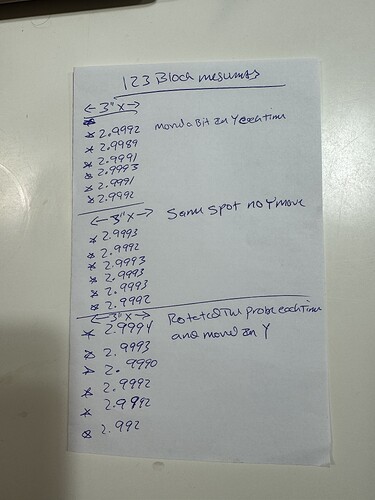 123 Block mesurments
← 3" x →
* 2.9992 moved a Bit in Y each time
* 2.9989
* 2.9991
* 2.9993
* 2.9991
* 2.9992
← 3" x → Same Spot no Y move
* 2.9993
* 2.9992
* 2.9993
* 2.9993
* 2.9993
* 2.9992
← 3" x → Rotated The probe each time
* 2.9994 and moved in Y
* 2.9993
* 2.9990
* 2.9992
* 2.9992
* 2.992